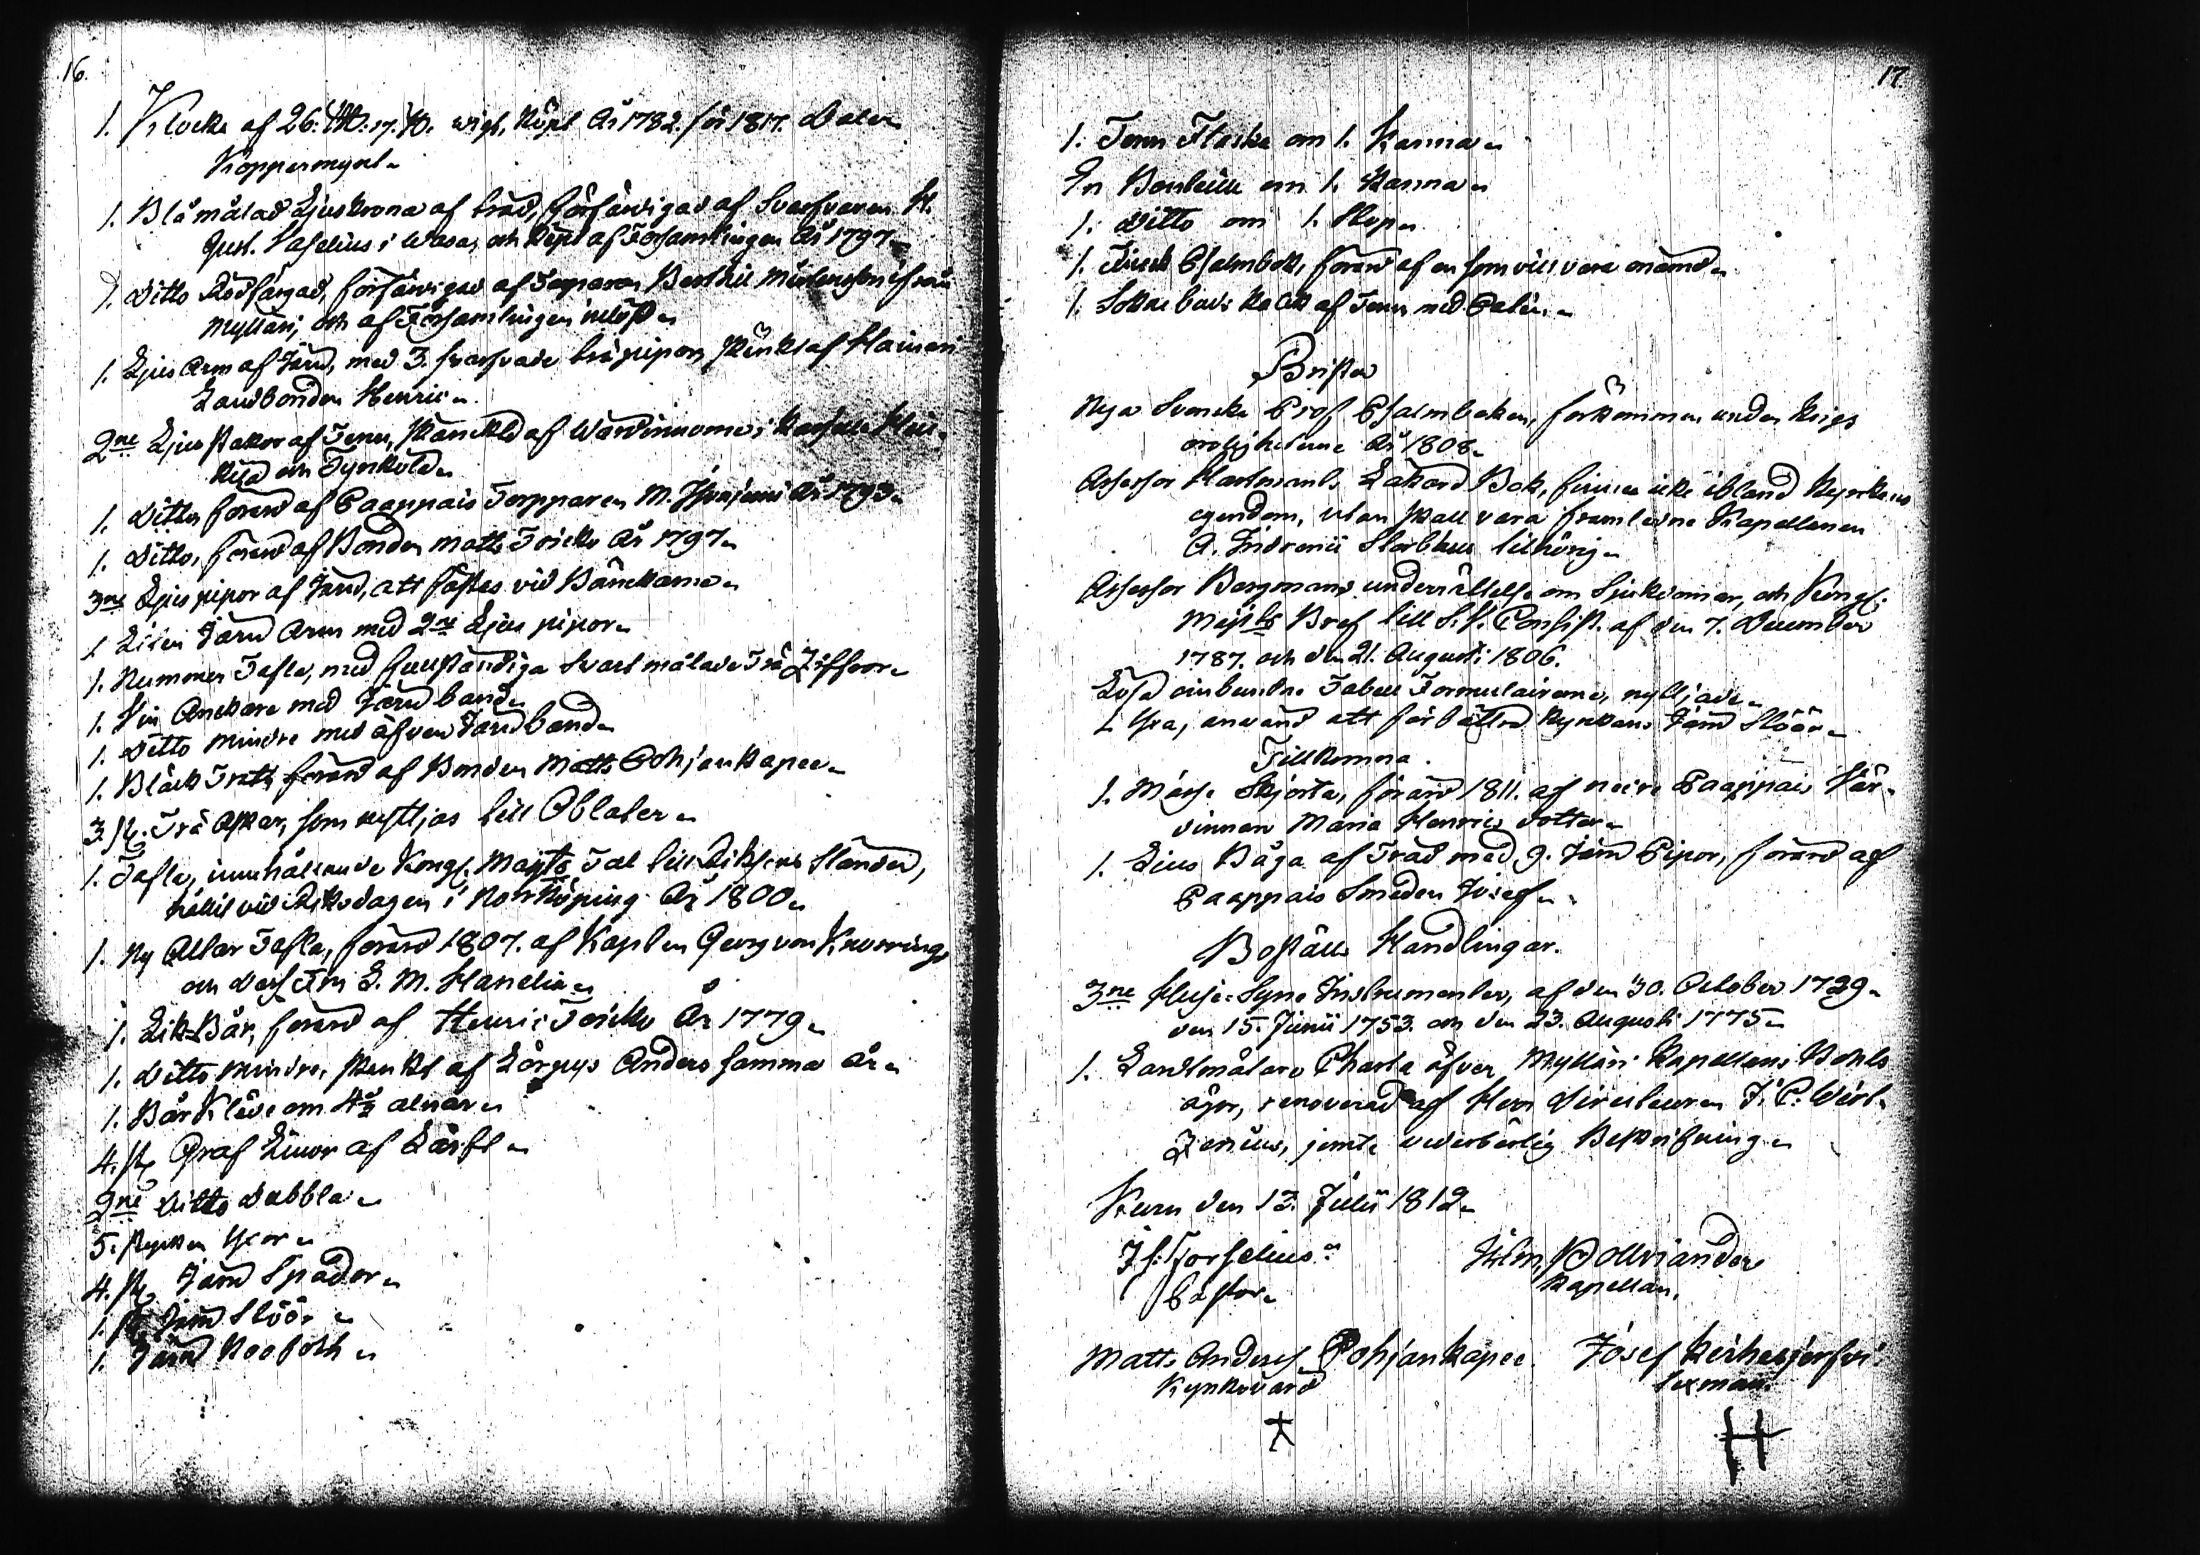 16.
1. Klocka af 26. ℔. 17. ℔. wigt, Köpt År 1782. för 1817. Daler
Kopparmynt.
1. Blå målad Ljuskrona af träd, förfärdigad af Svarfvaren
Gust. Haselius i Wasa, och Köpt af Församlingen År 1797.
1. Ditto Rödfärgad, förfärdigad af Torparen Berthil
Mylläri, och af Församlingen inlöst.
1. Ljus Arm af Järn, med 3. svarfvade träpipor, skänkt af
Landbonden Henric.
2ne Ljusstakar af Tenn, skänckte af Wärdinnorne i
och Tyrkölä.
1. Ditto, förärd af Paappais Torpparen M. År 1793.
1. Ditto, förärd af Bonden Matts Toicko År 1797.
3ne Ljus pipor af Järn, att fästas vid Bänckarna.
1 Liten Järn Arm med 2ne Ljus pipor.
1. Nummer Tafla, med fullständiga Svart målade Trä Ziffror.
1. Vin Anckare med Järn band.
1. Ditto mindre med äfven Järnband.
1. Bläck Tratt förärd af Bonden Matts Pohjankapee.
3. st. Trä Askar, som nyttjas till Oblater.
1. Tafla, innehållande Kongl. Majts Tal till Riksens Ständer,
hållit vid Riksdagen i Norrköping År 1800.
1. Ny Altar Tafla, förärd 1807. af Kapten Georg von Knorring,
och dess Fru L. M. Hanelia.
1. Lik-Bår, förärd af Henric Toicko År 1779.
1. Ditto mindre, skänkt af Lörpys Anders samma år.
1. Bår Kläde om 4½ alnar.
4. st. Graf Linor af Lärft.
2ne Ditto dubbla.
5. stycken Yxor.
4. st. Järn Spador.
1. st. Järn Stöör.
1. Järn
17.
1. Tenn Flaska om 1. Kanna.
En Bouteille om 1. Kanna.
1. Ditto om 1. Stop.
1. Finsk Psalmbok, förärd af en som vill vara onämd.
1. Sockne buds Kalk af Tenn med Patén.
Brister
Nya Svenska Prof Psalmboken, förkommen under krigs
oroligheterne År 1808.
Assessor Hartmans Läkare Bok, finnes icke ibland Kyrckans
egendom, utan skall vara framledne Kapellanen
A. Indrenii Sterbhus tillhörig.
Assessor Bergmans underrättelse om Sjukdomar, och Kongl.
Majsts Bref till S. K. Consist. af den 7. December
1787. och den 21. Augusti 1806.
Lösa oinbundne Tabell Formulairerne, nyttjade.
1 Yxa, använd att förbättra Kyrckans Järn Stöör.
Tillkomna.
1. Mässe Skjorta, förärd 1811. af Paappais Vär-
dinnan Maria Henrics dotter.
1. Ljus Båga af Träd med 9. Järn Pipor, förärd af
Paappais Smeden Josef.
Boställs Handlingar.
3ne Huse-Syns Instrumenter, af den 30. October 1729.
den 15. Junii 1753. och den 23. Augusti 1775.
1. Landtmätare Charta öfver Mylläri Kapellans Bohls
ägor, renoverad af Herr Directeuren J. P. Wirt-
zenius, jemte vederbörlig Beskrifning.
Kuru den 13. Julii 1812.
Js. Forselius
Pastor.
Kapellan.
Matts Anders. Pohjankapee
Kyrkovärd
Josef Keihesjerfvi
Sexman.
H